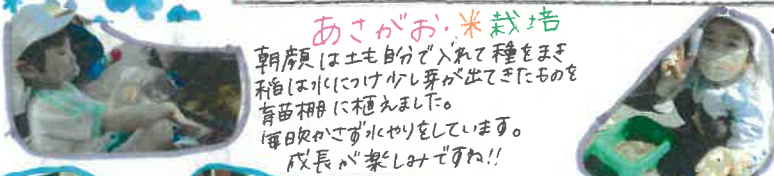 あさがお・米栽培
朝顔は土も自分で入れて種をまき
稲は水につけ少し芽が出てきたものを
育苗棚に植えました。
毎日欠かさず水やりをしています。
成長が楽しみですね!!